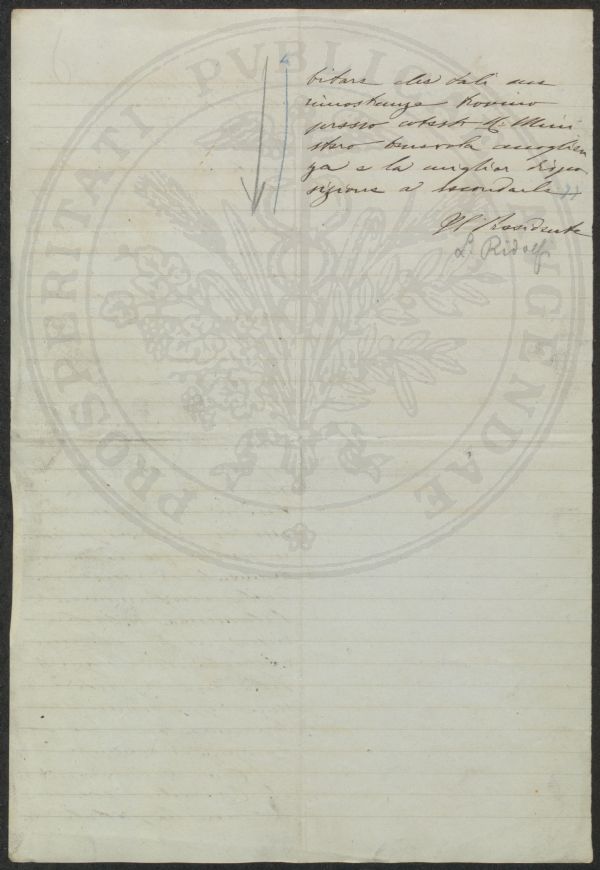 PROSPERITATI PUBLICAE AUGENDAE
bitare che tali sue
rimostranze trovino
presso codesto R. Mini
stero benevola accoglien
za e la miglior dispo-
sizione a secondarle "
Il Presidente
L. Ridolfi